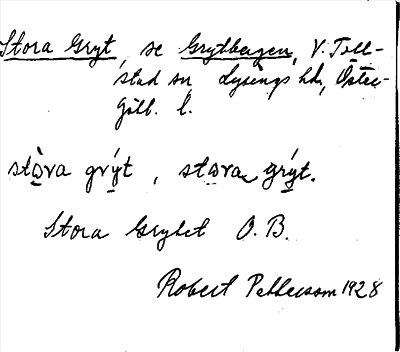 Stora Gryt, se Grytbergen, V. Toll-
stad sn Lysings hd, Öster-
götl. l.
stòra grýt, stora grýt.
Stora Grytet O.B.
Robert Pettersson 1928